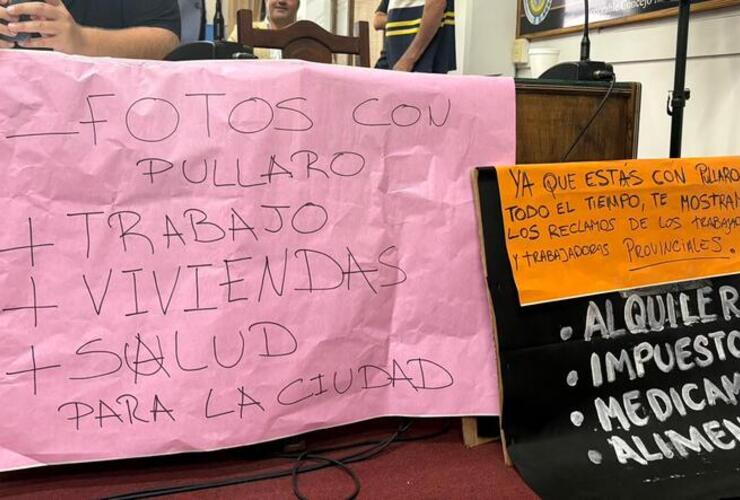 - FOTOS CON
PULLARO
+ TRABAJO
+ VIVIENDAS
+ SALUD
PARA LA CIUDAD
YA QUE ESTÁS CON PULLARO
TODO EL TIEMPO, TE MOSTRAM
LOS RECLAMOS DE LOS TRABAJAD
Y TRABAJADORAS PROVINCIALES.
• ALQUILER
• IMPUESTO
• MEDICAM
• ALIMEN